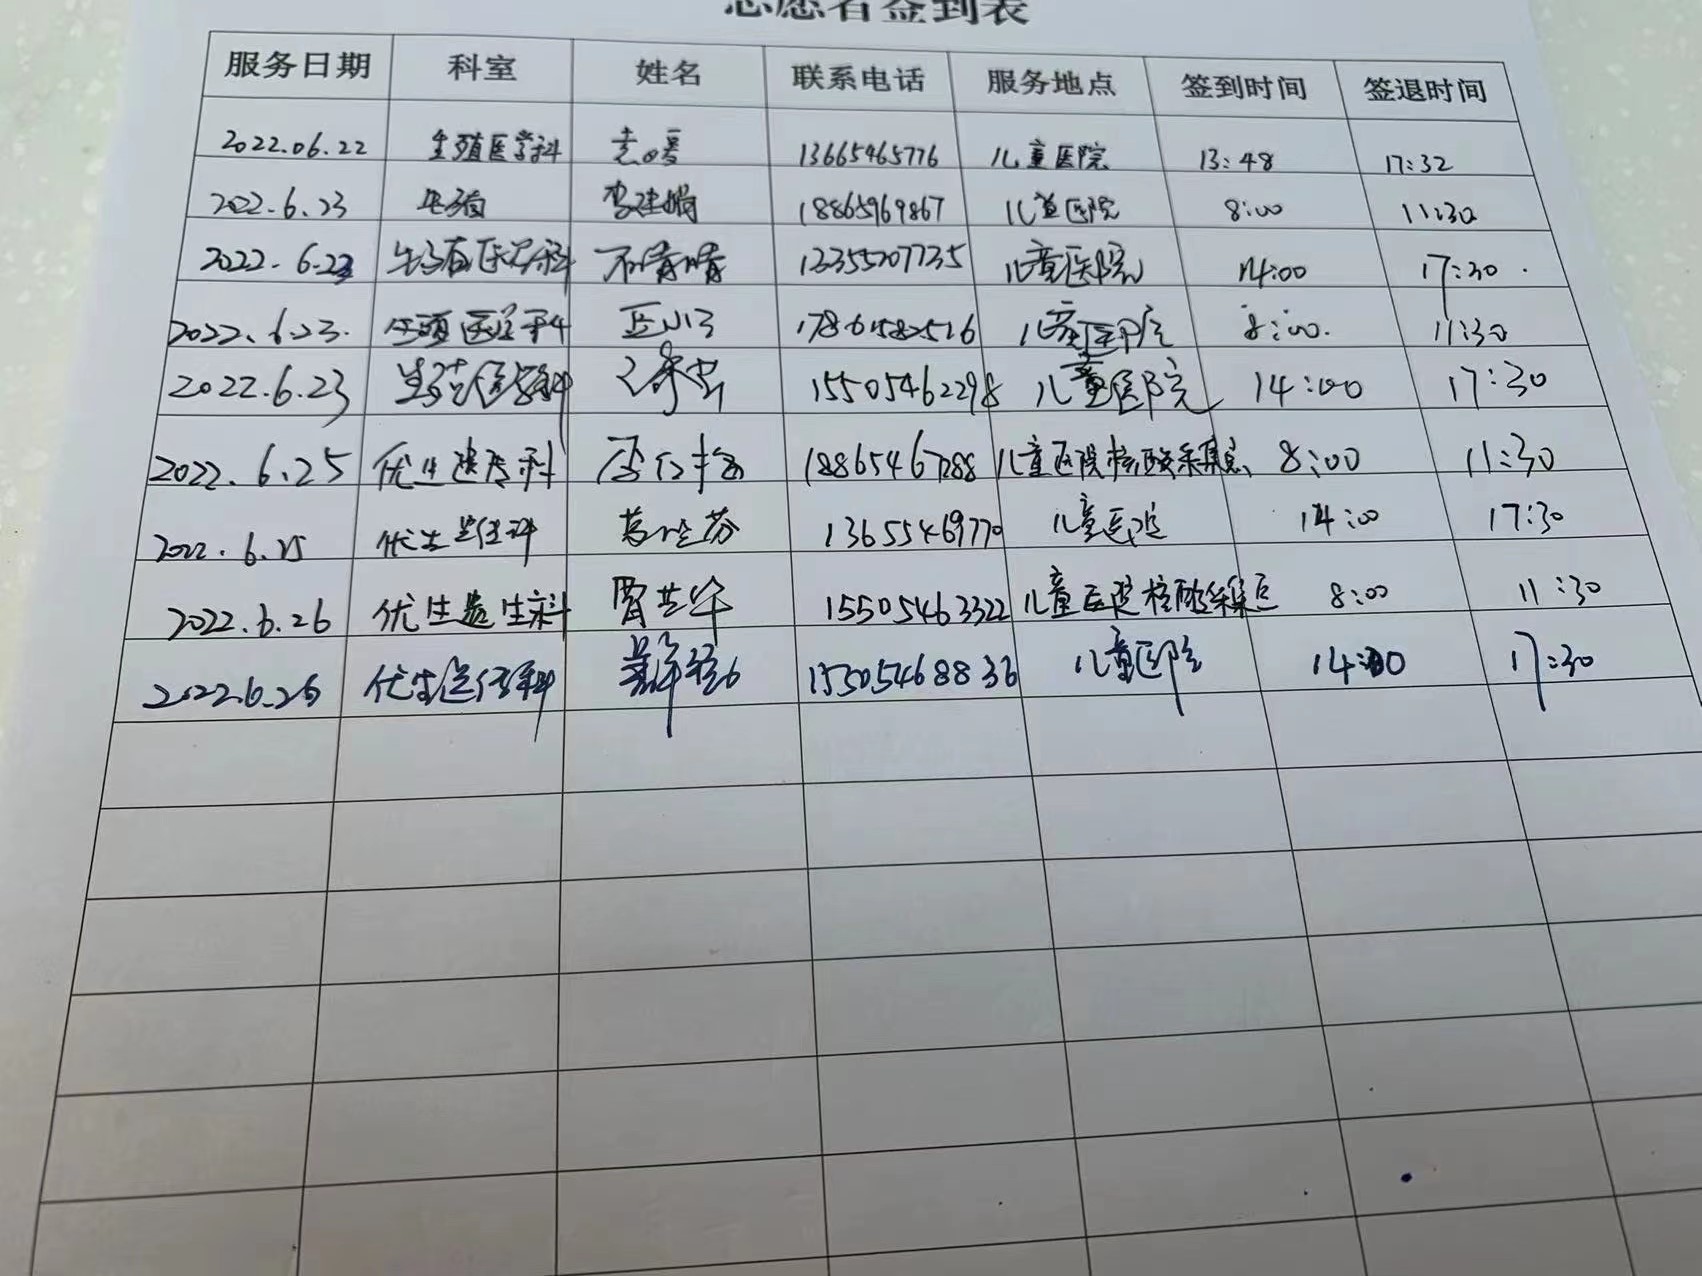 志愿者签到表
服务日期 科室 姓名 联系电话 服务地点 签到时间 签退时间
2022.06.22 生殖医学科 13665465776 儿童医院 13:48 17:32
2022.6.23 生殖 李建娟 18865969867 儿童医院 8:00 11:30
2022.6.23 生殖医学科 石晴晴 儿童医院 14:00 17:30
2022.6.23. 生殖医学科 儿童医院 8:00. 11:30
2022.6.23 生殖医学科 15505462298 儿童医院 14:00 17:30
2022.6.25 优生遗传科 18865467288 儿童医院核酸采集点 8:00 11:30
2022.6.25 优生遗传科 13655469770 儿童医院 14:00 17:30
2022.6.26 优生遗生科 15505463322 儿童医院核酸采集点 8:00 11:30
2022.6.26 优生遗传科 15505468836 儿童医院 14:00 17:30